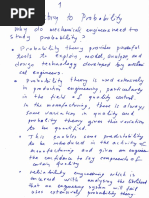 1
Intro to Probability
Why do mechanical engineers need to
study probability?
• Probability theory provides powerful
tools to explain, model, analyze and
device technology developed by mechani-
cal engineers.
• Probability theory is used extensively
in production engineering, particularly
in the field of quality control
In the manufacture, there is always
some variation in quality and
probability theory gives this variation
to be quantified.
• This enables some predictability
to be introduced in the
manufacture and gives the engineer
the confidence to say components
of certain quality
• reliability engineering which is
concerned with
that an engineering system will fail
uses extensively probability theory.